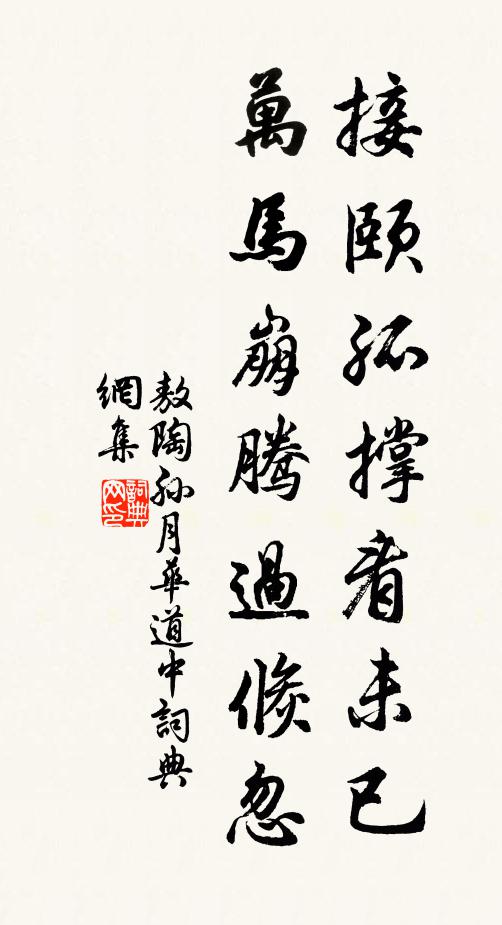 接頤孤撐看未已
萬馬崩騰過倏忽
敖陶孫月華道中詞典
網集
詞典
網印